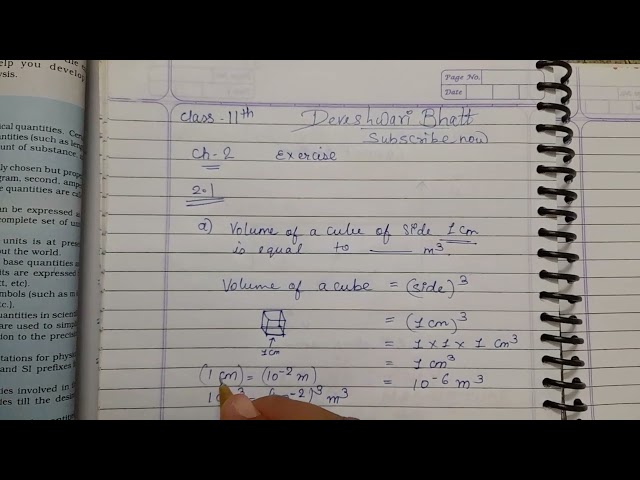 help you develop
ysis.
ical quantities. Cer
ntities (such as len
unt of substance,
ly chosen but prop
gram, second, ampe
e quantities are cal
can be expressed a
complete set of un
units is at prese
out the world.
base quantities a
its are expressed
t, etc).
mbols (such as m
).
uantities in scien
are used to simp
tion to the precis
tations for physic
and SI prefixes
ities involved in
ties till the desi
Page No.
Date
Class - 11th
Deveshwari Bhatt
Subscribe now
Ch-2 Exercise
2.1
a) Volume of a cube of side 1 cm
is equal to ___ m³.
Volume of a cube = (side)³
= (1 cm)³
= 1 × 1 × 1 cm³
1 cm
= 1 cm³
(1 cm) = (10⁻² m)
= 10⁻⁶ m³
m³